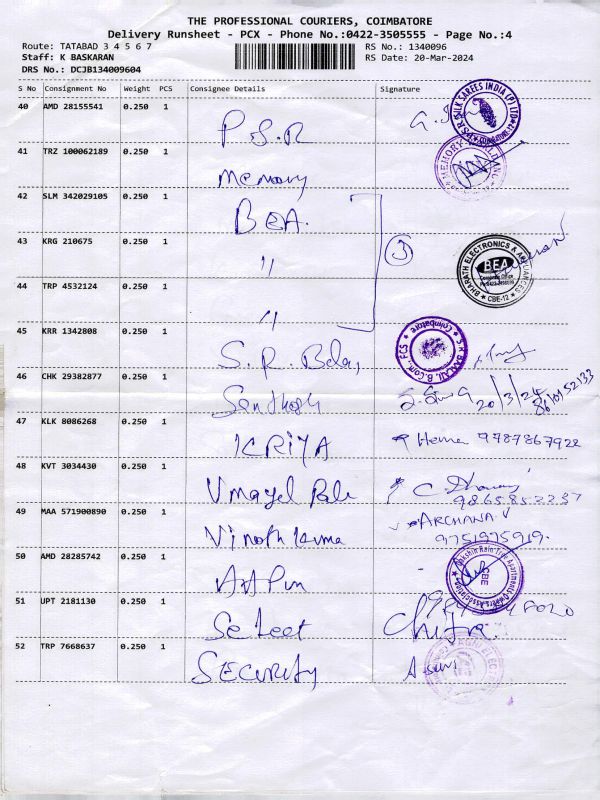 THE PROFESSIONAL COURIERS, COIMBATORE
Delivery Runsheet - PCX - Phone No.:0422-3505555 - Page No.:4
Route: TATABAD 3 4 5 6 7
RS No.: 1340096
Staff: K BASKARAN
RS Date: 20-Mar-2024
DRS No.: DCJB134009604
S No Consignment No Weight PCS Consignee Details Signature
40 AMD 28155541 0.250 1 P.S.R
41 TRZ 100062189 0.250 1 Memory
42 SLM 342029105 0.250 1 BEA.
43 KRG 210675 0.250 1 " 3
BHARATH ELECTRONICS & APPLIANCES
BEA
CBE-12
44 TRP 4532124 0.250 1 "
45 KRR 1342808 0.250 1 S.R. Bala,
46 CHK 29382877 0.250 1 Santhosh 20/3/24
47 KLK 8086268 0.250 1 KRIYA Hema 9787867922
48 KVT 3034430 0.250 1 Umayal
9865852237
49 MAA 571900890 0.250 1 ARCHANA
9751975919.
50 AMD 28285742 0.250 1
CBE
51 UPT 2181130 0.250 1 Select Chitra
52 TRP 7668637 0.250 1 SECURITY